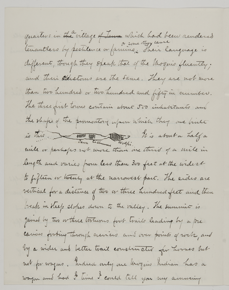 quarters in the village of which had been rendered
tenantless by pestilence or famine. Their language is
different, though they speak that of the Moquis fluently,
and their are the same. They are not more
than two hundred or two hundred and fifty in number.
The three first towns contain about inhabitants and
the shape of the summit upon which they are built
is this It is about a half a
mile or perhaps not more than one third of a mile in
length and varies from less than two feet at the widest
to fifteen or twenty at the narrowest part. The sides are
vertical for a distance of two or three hundred feet, and then
in steep slopes down to the valley. The summit is
gained by two or three tortuous foot trails leading by a
through ravines and over points of rock, and
by a wider and better trail constructed for horses but
not for wagons. Indeed only one Indian had a
wagon and had I time I could tell you any amusing